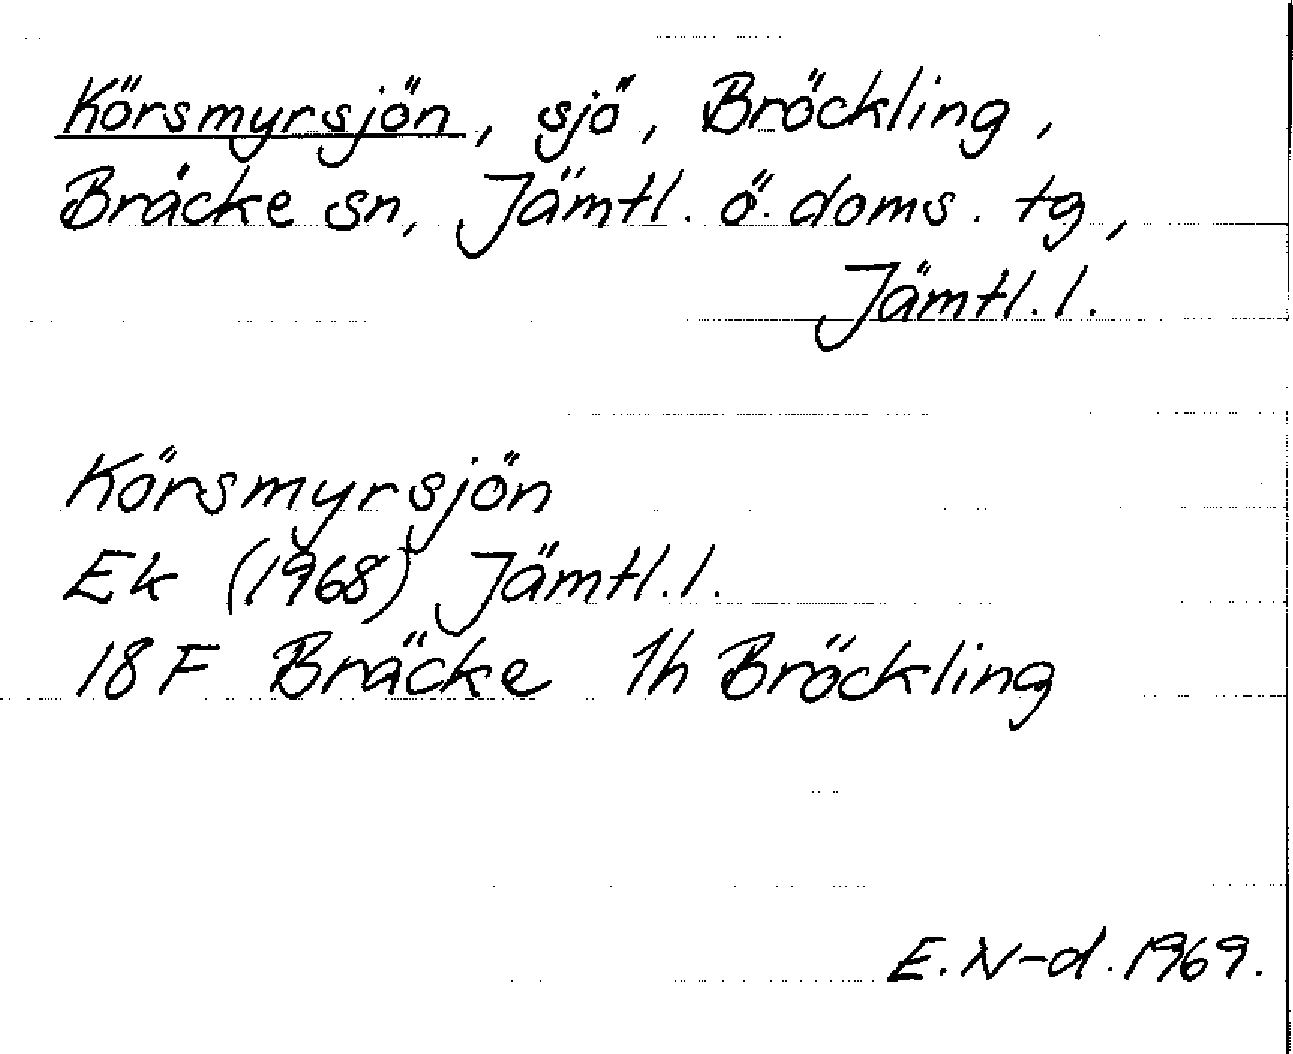 Körsmyrsjön, sjö, Bröckling,
Bräcke sn, Jämtl. ö. doms. tg,
Jämtl. l.
Körsmyrsjön
Ek (1968) Jämtl. l.
18 F Bräcke 1h Bröckling
E. N-d. 1969.